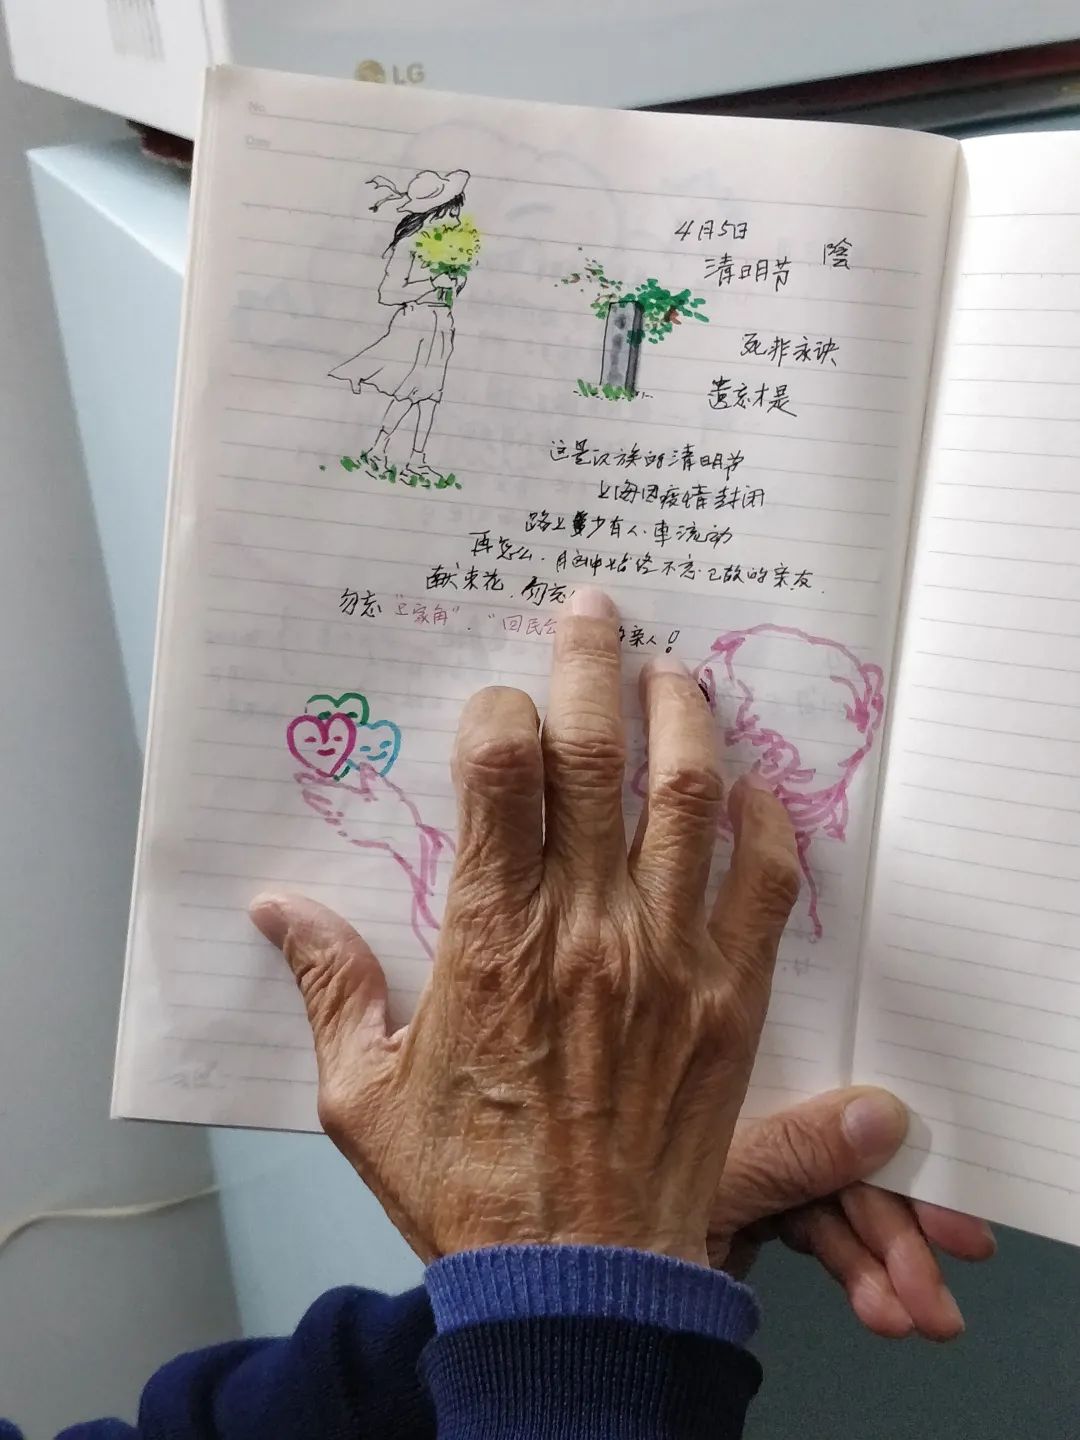 LG
No.
Date
4月5日
清明节 陰
死非永诀
遗忘才是
这是汉族的清明节
上海因疫情封闭
路上少有人.車流动
再怎么.脑中始终不忘已故的亲友.
献束花.勿忘
勿忘"王家角"."回民公 亲人！